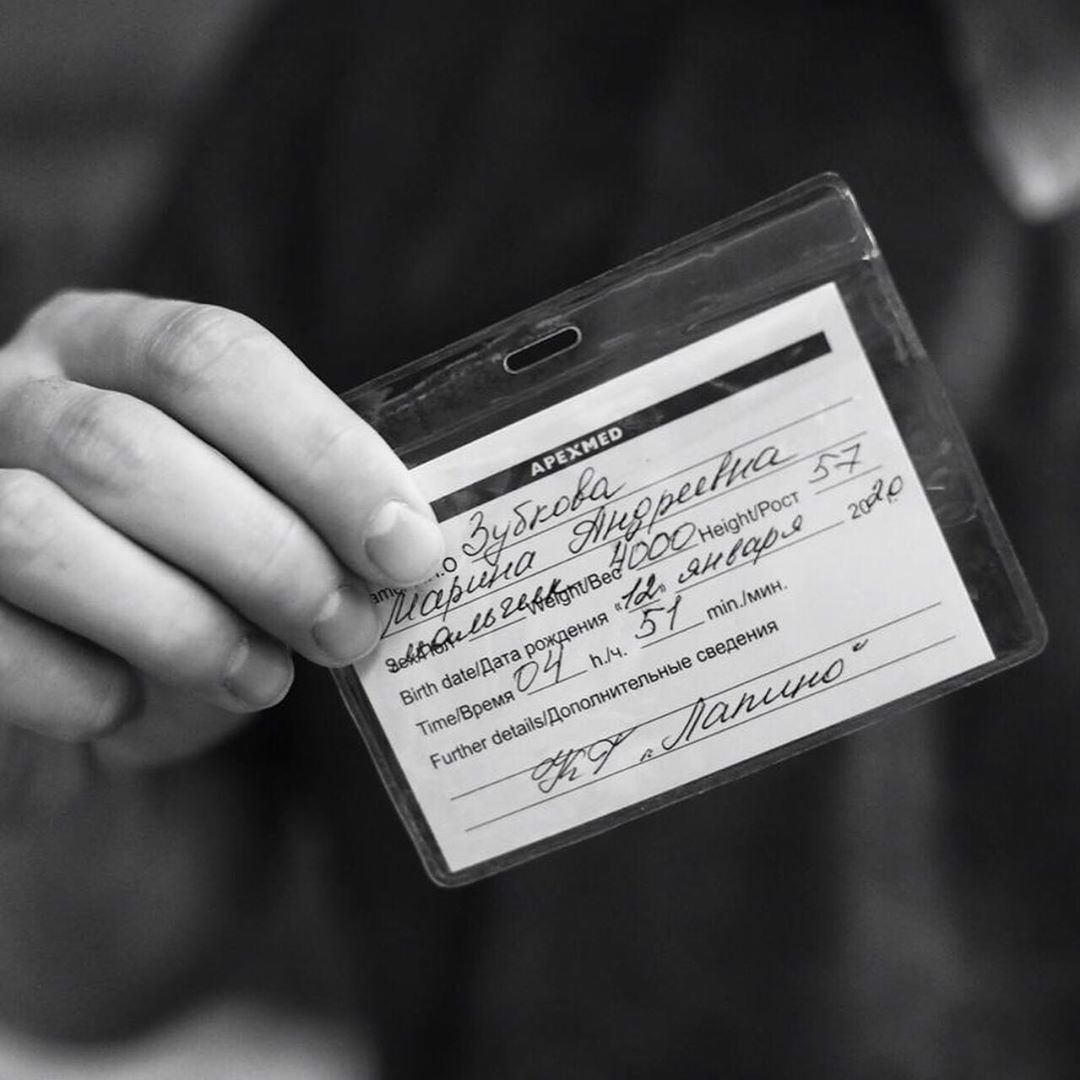 APEXMED
Зубкова
Марина Андреевна
мальчик Weight/Вес 4000 Height/Рост 57
Birth date/Дата рождения "12" января 2020 г.
Time/Время 04 h./ч. 51 min./мин.
Further details/Дополнительные сведения
КГ "Лапино"